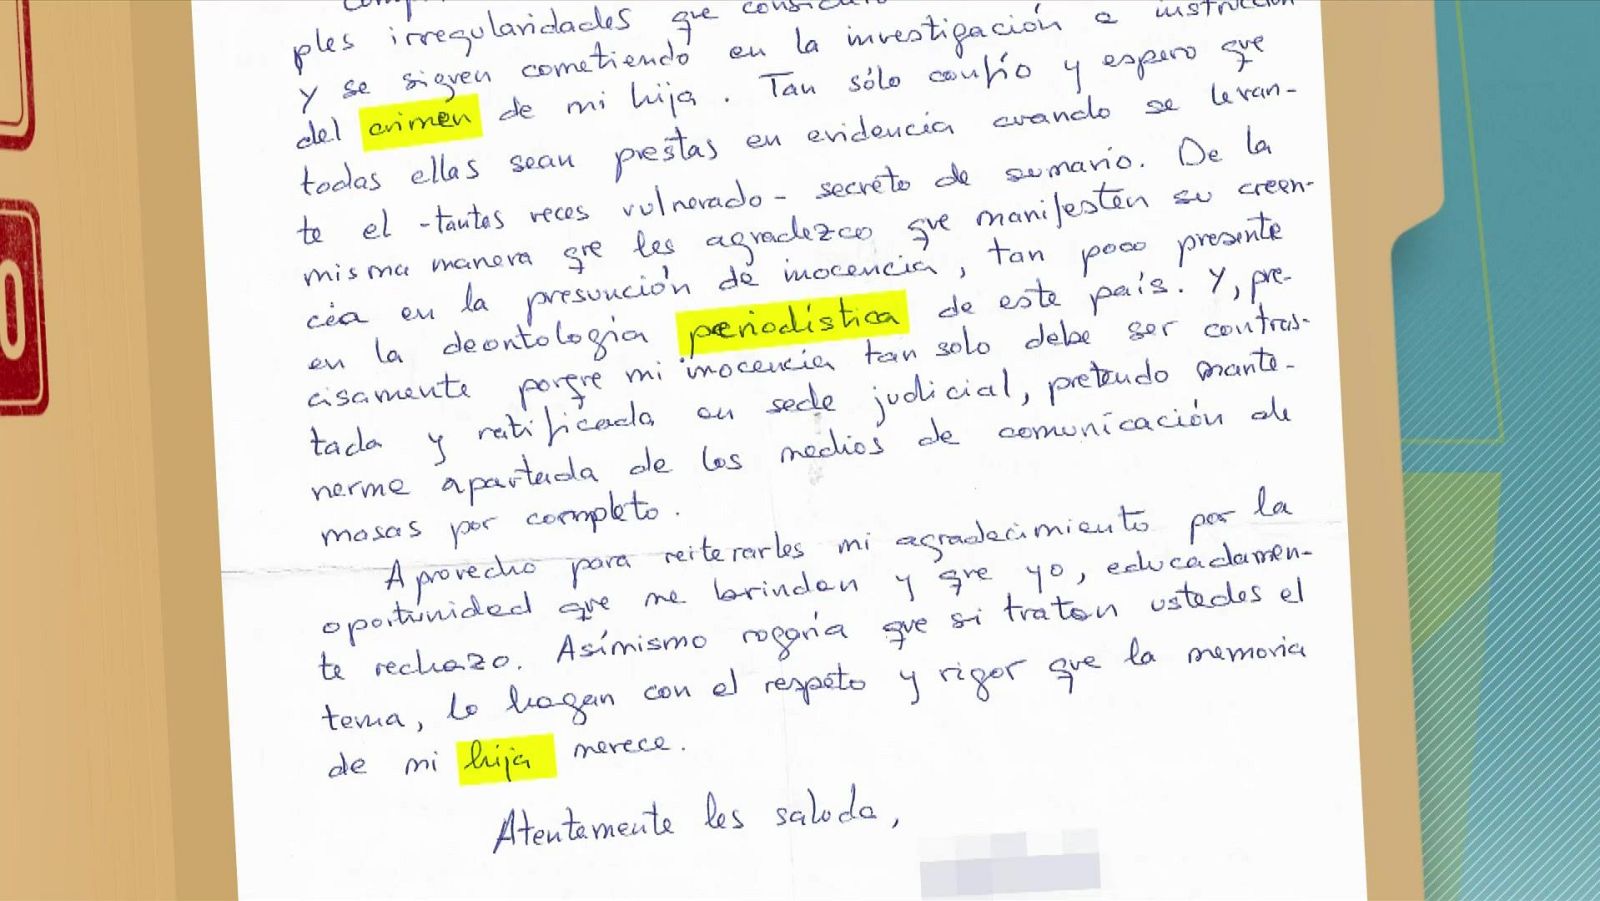 ples irregularidades que
y se siguen cometiendo en la investigación e instrucción
del crimen de mi hija. Tan sólo confío y espero que
todas ellas sean puestas en evidencia cuando se levan-
te el -tantas veces vulnerado- secreto de sumario. De la
misma manera que les agradezco que manifiesten su creen-
cia en la presunción de inocencia, tan poco presente
en la deontología periodística de este país. Y, pre-
cisamente porque mi inocencia tan solo debe ser contras-
tada y ratificada en sede judicial, pretendo mante-
nerme apartada de los medios de comunicación de
masas por completo.
Aprovecho para reiterarles mi agradecimiento por la
oportunidad que me brindan y que yo, educadamen-
te rechazo. Asímismo rogaría que si tratan ustedes el
tema, lo hagan con el respeto y rigor que la memoria
de mi hija merece.
Atentamente les saluda,